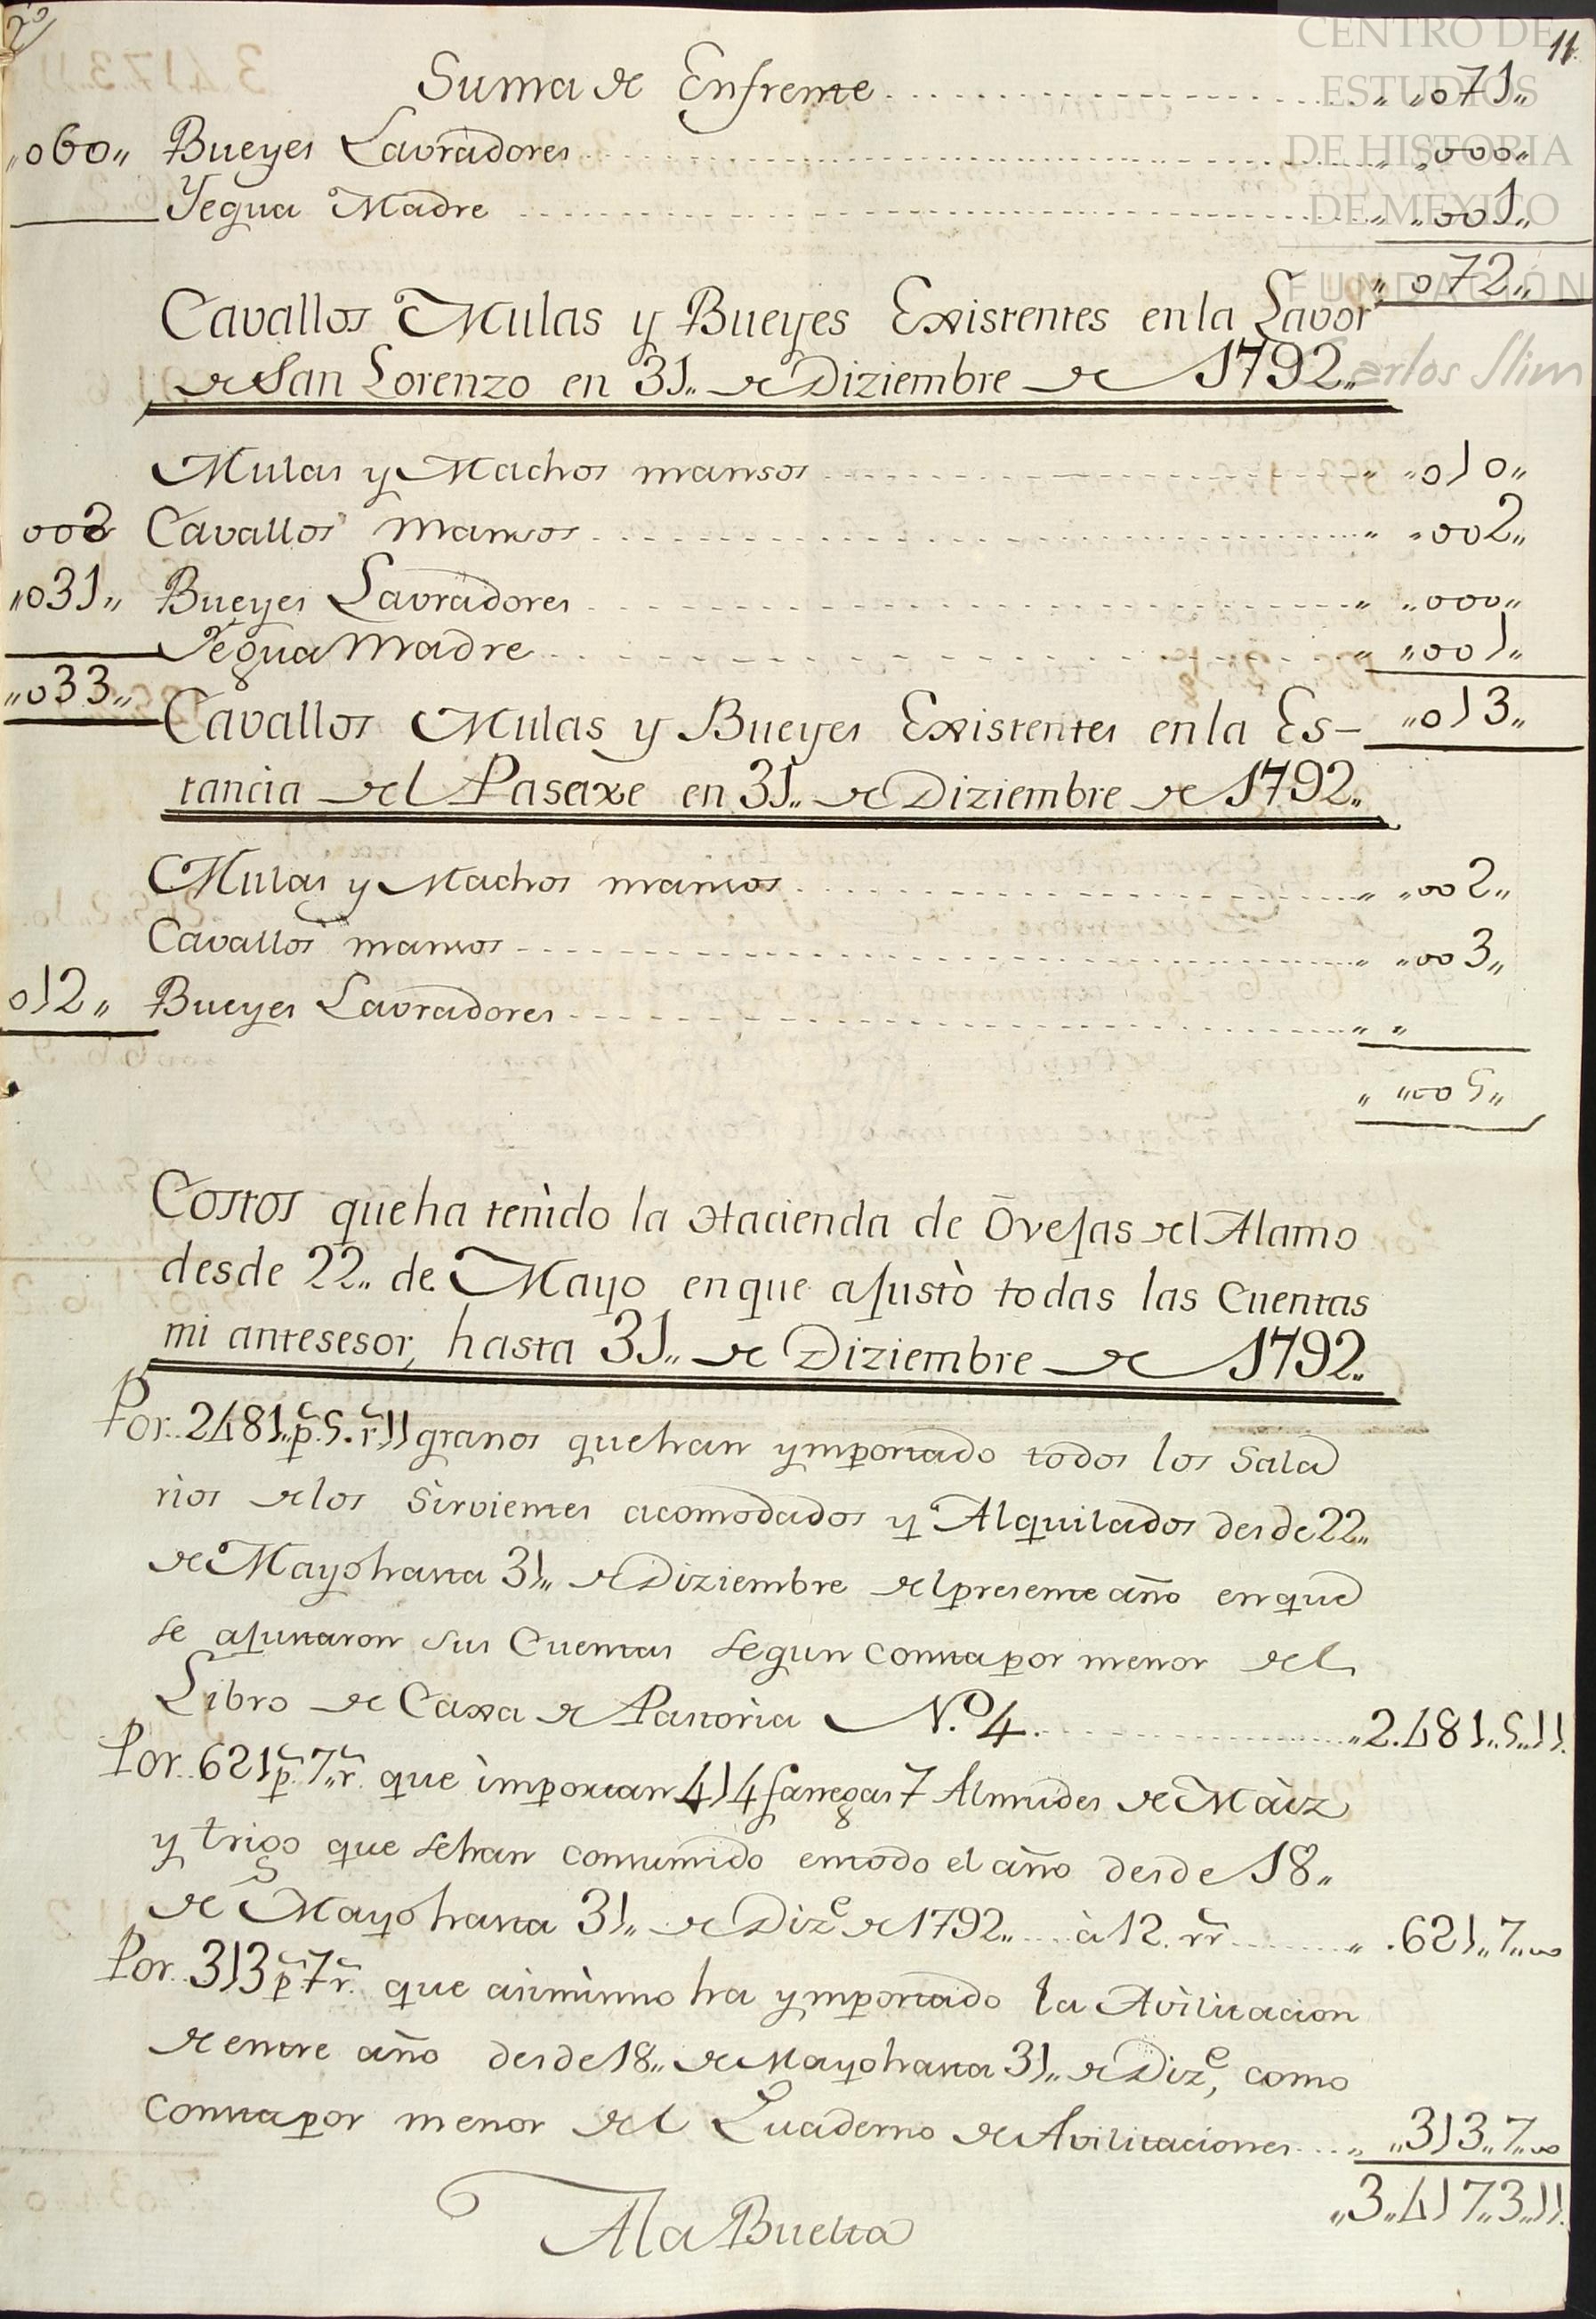 CENTRO DE
ESTUDIOS
DE HISTORIA
DE MEXICO
FUNDACIÓN
Carlos Slim
11.
Suma de Enfrente ........ " "071"
"060" Bueyes Lavradores ........ " "000"
Yegua Madre ........ " "001"
" 072"
Cavallos Mulas y Bueyes Existentes en la Lavor
de San Lorenzo en 31" de Diziembre de 1792"
Mulas y Machos mansos ........ " "010"
002 Cavallos Mansos ........ " "002"
"031" Bueyes Lavradores ........ " "000"
Yegua Madre ........ " "001"
"033"
"013"
Cavallos Mulas y Bueyes Existentes en la Es-
tancia del Pasaxe en 31" de Diziembre de 1792"
Mulas y Machos mansos ........ " "002"
Cavallos mansos ........ " "003"
012" Bueyes Lavradores ........ " "
" "005"
Costos que ha tenido la Hacienda de Ovejas del Alamo
desde 22" de Mayo en que ajustò todas las Cuentas
mi antesesor, hasta 31" de Diziembre de 1792"
Por. 2481" ps. 5. rs. 11 granos que han ymportado todos los Sala
rios de los Sirvientes acomodados y Alquilados desde 22"
de Mayo hasta 31" de Diziembre del presente año en que
se ajustaron sus Cuentas segun consta por menor del
Libro de Caxa de Pastoria N.º 4. ........ "2.481"5"11.
Por. 621 ps. 7" rs. que importan 414 fanegas 7 Almudes de Màiz
y trigo que se han consumido en todo el año desde 18"
de Mayo hasta 31" de Dize. de 1792" .... à 12. rr ........ " .621"7"00
Por. 313 ps. 7 rs. que asimismo ha ymportado la Avilitacion
de entre año desde 18" de Mayo hasta 31" de Dize, como
consta por menor del Quaderno de Avilitaciones .... " "313"7"00
"3"417"3"11.
A la Buelta